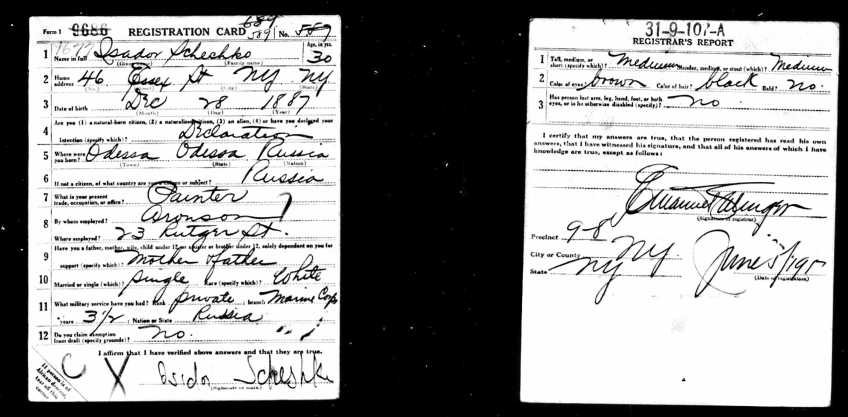 Form 1 9686 REGISTRATION CARD 589 No. 587
689
1 Name in full Isador Schechko Age, in yrs. 30
(Given name) (Family name)
2 Home address 46 Essex St NY NY
3 Date of birth Dec 28 1887
(Month) (Day) (Year)
4 Are you (1) a natural-born citizen, (2) a naturalized citizen, (3) an alien, (4) or have you declared your
intention (specify which)? Declaration
5 Where were you born? Odessa Odessa Russia
(Town) (State) (Nation)
6 If not a citizen, of what country are you a citizen or subject? Russia
7 What is your present trade, occupation, or office? Painter
8 By whom employed? Aronson
Where employed? 23 Rutger St.
9 Have you a father, mother, wife, child under 12, or a sister or brother under 12, solely dependent on you for
support (specify which)? Mother & father
10 Married or single (which)? Single Race (specify which)? White
11 What military service have you had? Rank private; branch Marine Corps
years 3 1/2; Nation or State Russia
12 Do you claim exemption from draft (specify grounds)? No.
I affirm that I have verified above answers and that they are true.
C X Isidor Scheshko
(Signature or mark)
If person is of African descent, tear off this corner
31-9-107-A
REGISTRAR'S REPORT
1 Tall, medium, or short (specify which)? Medium Slender, medium, or stout (which)? Medium
2 Color of eyes? brown Color of hair? black Bald? No.
3 Has person lost arm, leg, hand, foot, or both eyes, or is he otherwise disabled (specify)? No
I certify that my answers are true, that the person registered has read his own
answers, that I have witnessed his signature, and that all of his answers of which I have
knowledge are true, except as follows:
Emanuel
(Signature of registrar)
Precinct 9-8
City or County NY.
State NY
June 5/1917
(Date of registration)